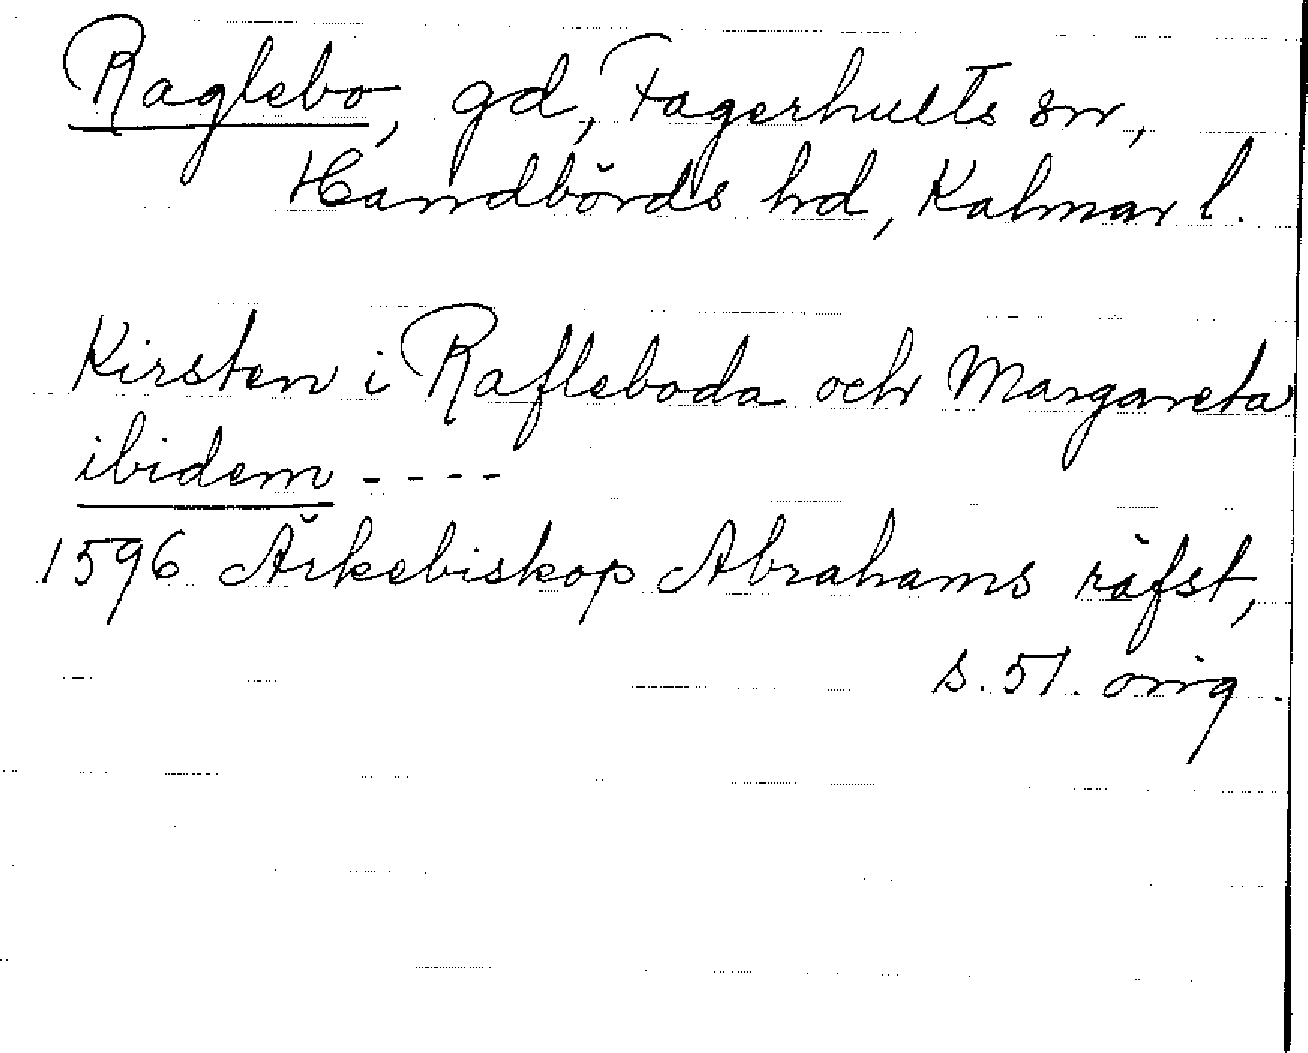 Raglebo, gd, Fagerhults sn,
Handbörds hd, Kalmar l.
Kirsten i Rafleboda och Margareta
ibidem - - - -
1596 Ärkebiskop Abrahams räfst,
s. 51. orig.